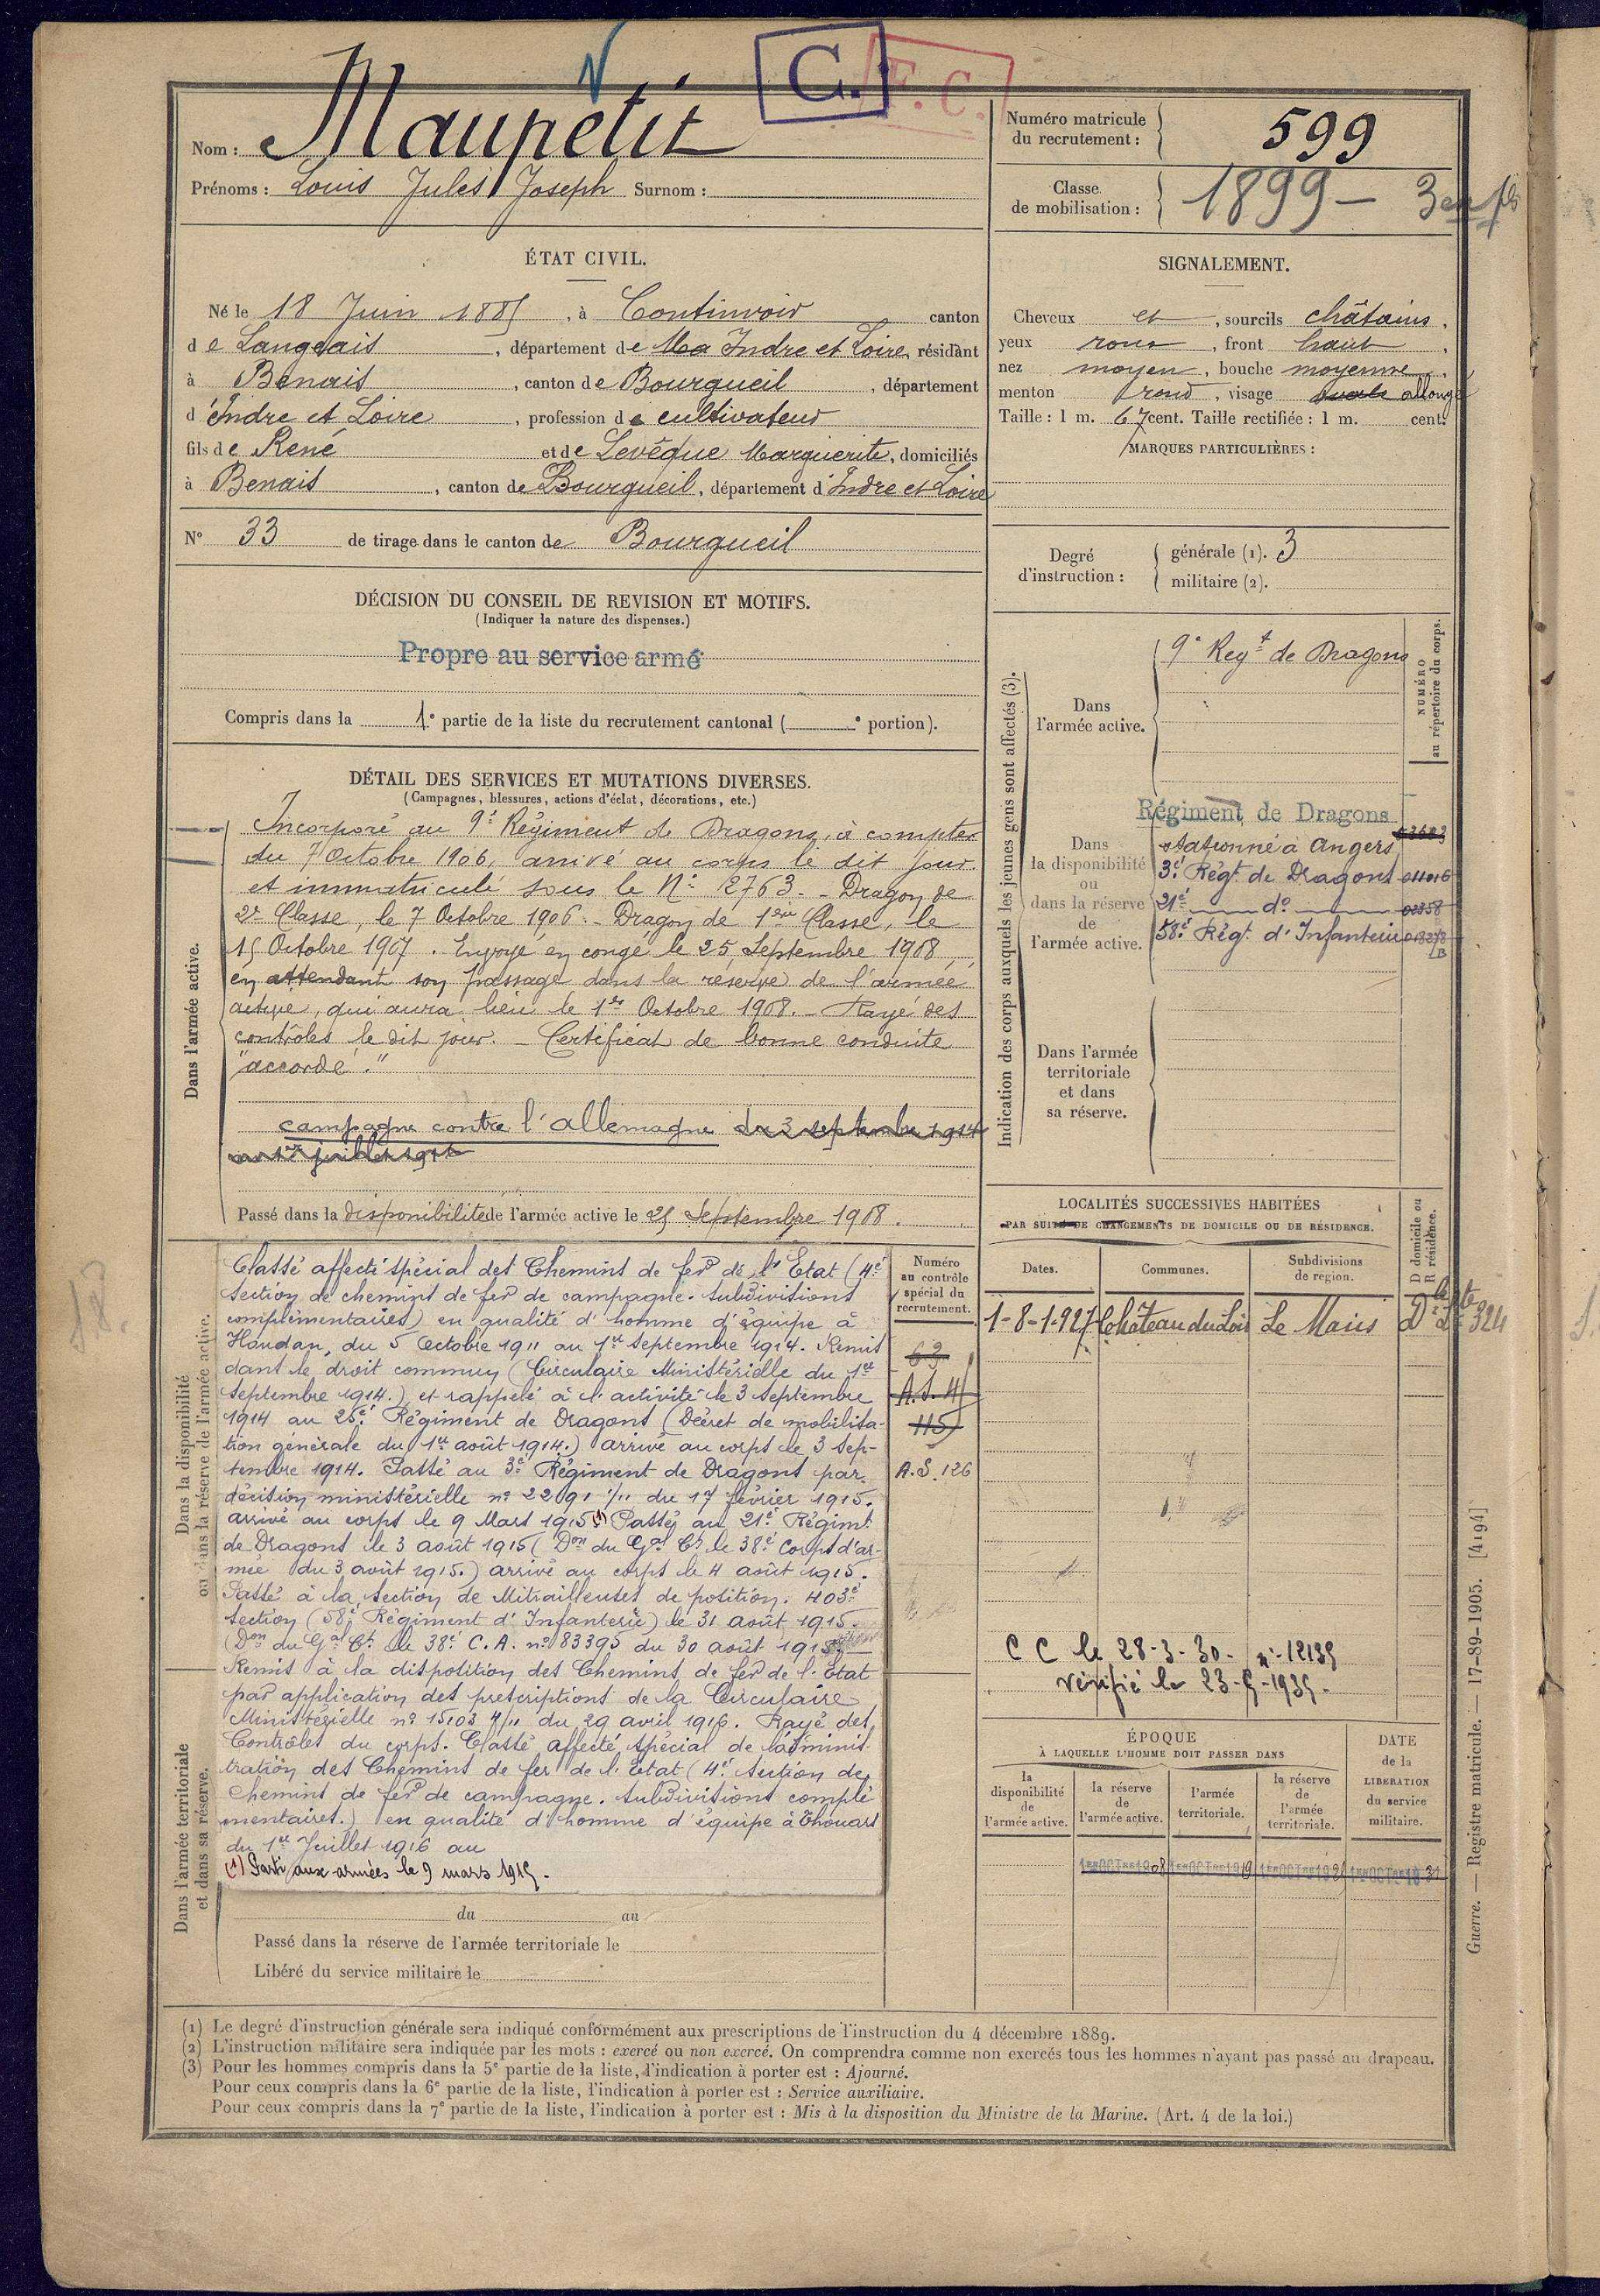 C.
F.C.
Nom : Maupetit
Prénoms : Louis Jules Joseph Surnom :
Numéro matricule
du recrutement : 599
Classe
de mobilisation : 1899 – 3
ÉTAT CIVIL.
Né le 18 Juin 1885, à Continvoir canton
de Langeais, département de Indre et Loire, résidant
à Benais, canton de Bourgueil, département
d'Indre et Loire, profession de cultivateur
fils de René et de Levêque Marguerite, domiciliés
à Benais, canton de Bourgueil, département d'Indre et Loire
N° 33 de tirage dans le canton de Bourgueil
SIGNALEMENT.
Cheveux et, sourcils châtains,
yeux roux, front haut,
nez moyen, bouche moyenne,
menton rond, visage allongé
Taille : 1 m. 67 cent. Taille rectifiée : 1 m. cent.
MARQUES PARTICULIÈRES :
Degré
d'instruction :
générale (1). 3
militaire (2).
DÉCISION DU CONSEIL DE REVISION ET MOTIFS.
(Indiquer la nature des dispenses.)
Propre au service armé
Compris dans la 1e partie de la liste du recrutement cantonal ( e portion).
DÉTAIL DES SERVICES ET MUTATIONS DIVERSES.
(Campagnes, blessures, actions d'éclat, décorations, etc.)
Dans l'armée active.
Incorporé au 9e Régiment de Dragons, à compter
du 7 Octobre 1906, arrivé au corps le dit jour
et immatriculé sous le N° 2763. – Dragon de
2e Classe, le 7 Octobre 1906. – Dragon de 1ère Classe, le
15 Octobre 1907. Envoyé en congé le 25 Septembre 1908
en attendant son passage dans la réserve de l'armée
active, qui aura lieu le 1er Octobre 1908. – Rayé des
contrôles le dit jour. – Certificat de bonne conduite
"accordé."
campagne contre l'allemagne du 3 septembre 1914
Passé dans la disponibilité de l'armée active le 25 Septembre 1908.
Indication des corps auxquels les jeunes gens sont affectés (3).
NUMÉRO
au répertoire du corps.
Dans
l'armée active.
9e Regt de Dragons
Dans
la disponibilité
ou
dans la réserve
de
l'armée active.
Régiment de Dragons
stationné à Angers
3e Régt de Dragons 011016
21e do 02358
58e Régt d'Infanterie
Dans l'armée
territoriale
et dans
sa réserve.
Dans la disponibilité
ou dans la réserve de l'armée active.
Classé affecté spécial des Chemins de fer de l'Etat (4e
section de chemins de fer de campagne. Subdivisions
complémentaires) en qualité d'homme d'équipe à
Houdan, du 5 Octobre 1911 au 1er Septembre 1914. Remis
dans le droit commun (Circulaire Ministérielle du 1er
septembre 1914.) et rappelé à l'activité le 3 Septembre
1914 au 25e Régiment de Dragons (Décret de mobilisa-
tion générale du 1er août 1914.) arrivé au corps le 3 Sep-
tembre 1914. Passé au 3e Régiment de Dragons par
décision ministérielle n° 22091 1/11 du 17 février 1915.
arrivé au corps le 9 Mars 1915 (1) Passé au 21e Régimt
de Dragons le 3 août 1915 (Don du Gal Ct le 38e Corps d'ar-
mée du 3 août 1915.) arrivé au corps le 4 août 1915.
Passé à la section de Mitrailleuses de position. 403e
section (58e Régiment d'Infanterie) le 31 août 1915.
(Don du Gal Ct le 38e C.A. n° 83395 du 30 août 1915
Remis à la disposition des Chemins de fer de l'Etat
par application des prescriptions de la Circulaire
Ministérielle n° 15103 4/11 du 29 avril 1916. Rayé des
Contrôles du corps. Classé affecté spécial de l'adminis-
tration des Chemins de fer de l'Etat (4e section de
chemins de fer de campagne. Subdivisions complé-
mentaires.) en qualité d'homme d'équipe à Thouars
du 1er Juillet 1916 au
(1) Parti aux armées le 9 mars 1915.
Numéro
au contrôle
spécial du
recrutement.
63
A.S. 4
115
A.S. 126
Dans l'armée territoriale
et dans sa réserve.
du au
Passé dans la réserve de l'armée territoriale le
Libéré du service militaire le
LOCALITÉS SUCCESSIVES HABITÉES
PAR SUITE DE CHANGEMENTS DE DOMICILE OU DE RÉSIDENCE.
Dates.
Communes.
Subdivisions
de region.
D domicile ou
R résidence.
1-8-1927 Château du Loir Le Mans D 324
C C le 28-3-30. n°-12139
Vérifié le 23-5-1935.
ÉPOQUE
À LAQUELLE L'HOMME DOIT PASSER DANS
la
disponibilité
de
l'armée active.
la réserve
de
l'armée active.
l'armée
territoriale.
la réserve
de
l'armée
territoriale.
DATE
de la
LIBERATION
du service
militaire.
1er OCTbre 1908
Guerre. — Registre matricule. — 17-89-1905. [4194]
(1) Le degré d'instruction générale sera indiqué conformément aux prescriptions de l'instruction du 4 décembre 1889.
(2) L'instruction militaire sera indiquée par les mots : exercé ou non exercé. On comprendra comme non exercés tous les hommes n'ayant pas passé au drapeau.
(3) Pour les hommes compris dans la 5e partie de la liste, l'indication à porter est : Ajourné.
Pour ceux compris dans la 6e partie de la liste, l'indication à porter est : Service auxiliaire.
Pour ceux compris dans la 7e partie de la liste, l'indication à porter est : Mis à la disposition du Ministre de la Marine. (Art. 4 de la loi.)